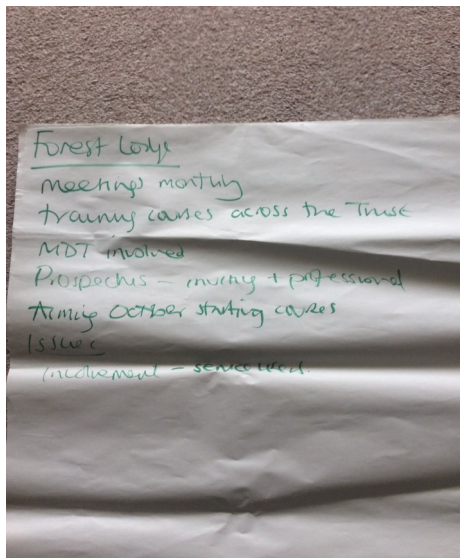 Forest Lodge
meetings monthly
training courses across the Trust
MDT involved
Prospectus - inviting + professional
Aiming October starting courses
Issues
involvement - service users.